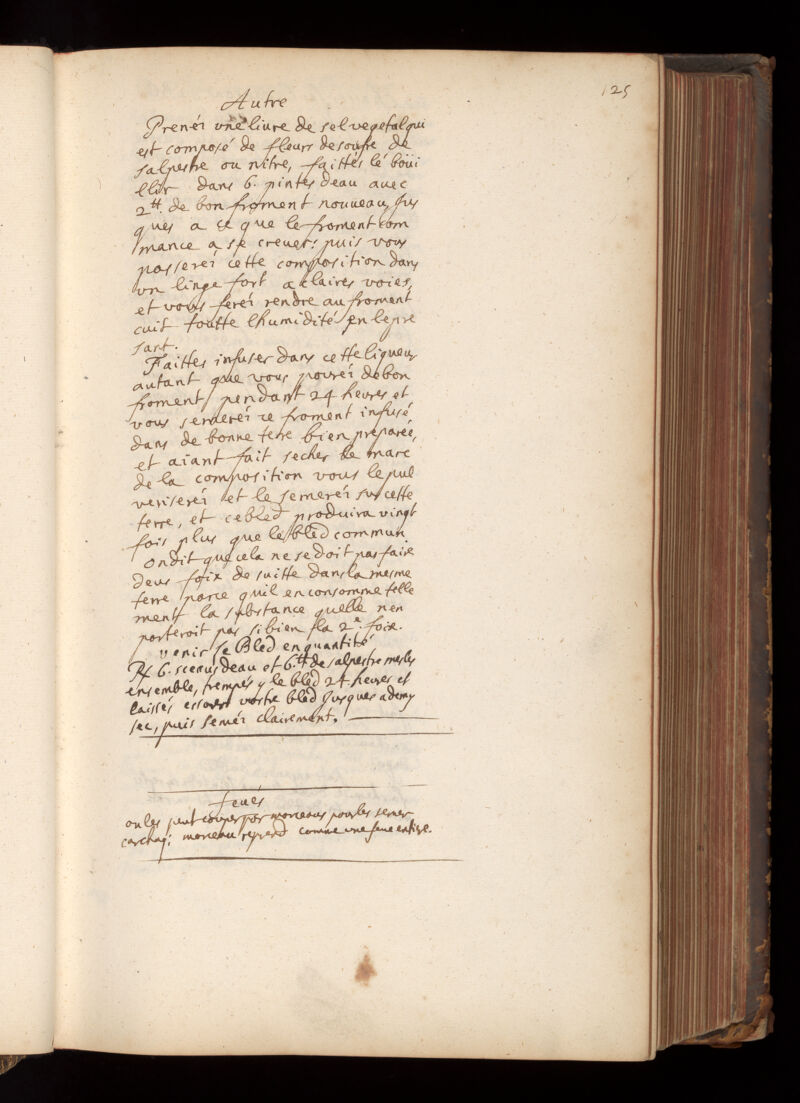 125
Autre
Prenéz vne liure de sel vegetal qui
est composé de fleurs de soufre de
salpestre ou nitre, faittes lé boüi
llir dans 6. pintes deau avec
2 tt. de bon froment nouveau, Jus
ques a ce que le froment com
mance a se creuer: puis vous
passeréz cette composition dans
vn linge fort a claires voies,
et vous feréz rendre au froment
cuit toutte lhumidité en le pre
sant.
Faittes infuser dans cette liqueur
autant que vous pouréz de bon
froment pendant 24 heures et
vous semeréz ce froment infusé
dans de bonne terre bien preparée,
et aiant fait secher le marc
de la composition vous le pul
veriseréz et le semeréz sur cette
terre, et ce bled produira vingt
fois plus que le bled commun.
on dit que cela ne se doit pas faire
deus foix de suitte dans la mesme
terre parce quil en consomme telle
ment la substance quelle nen
porteroit pas si bien la 2e. foix.
venir le Bled en quantité
℞ 6. sceaus deau et 6. tt de salpestre meslés
ensemble, trempés y le bled 24 heures et
laissés essorer vostre bled Jusques a demy
sec, puis seméz clairement.
feués
on les peut couper par morceaus pour les semer
car chaq; morceau reprend comme vne feue entiere.